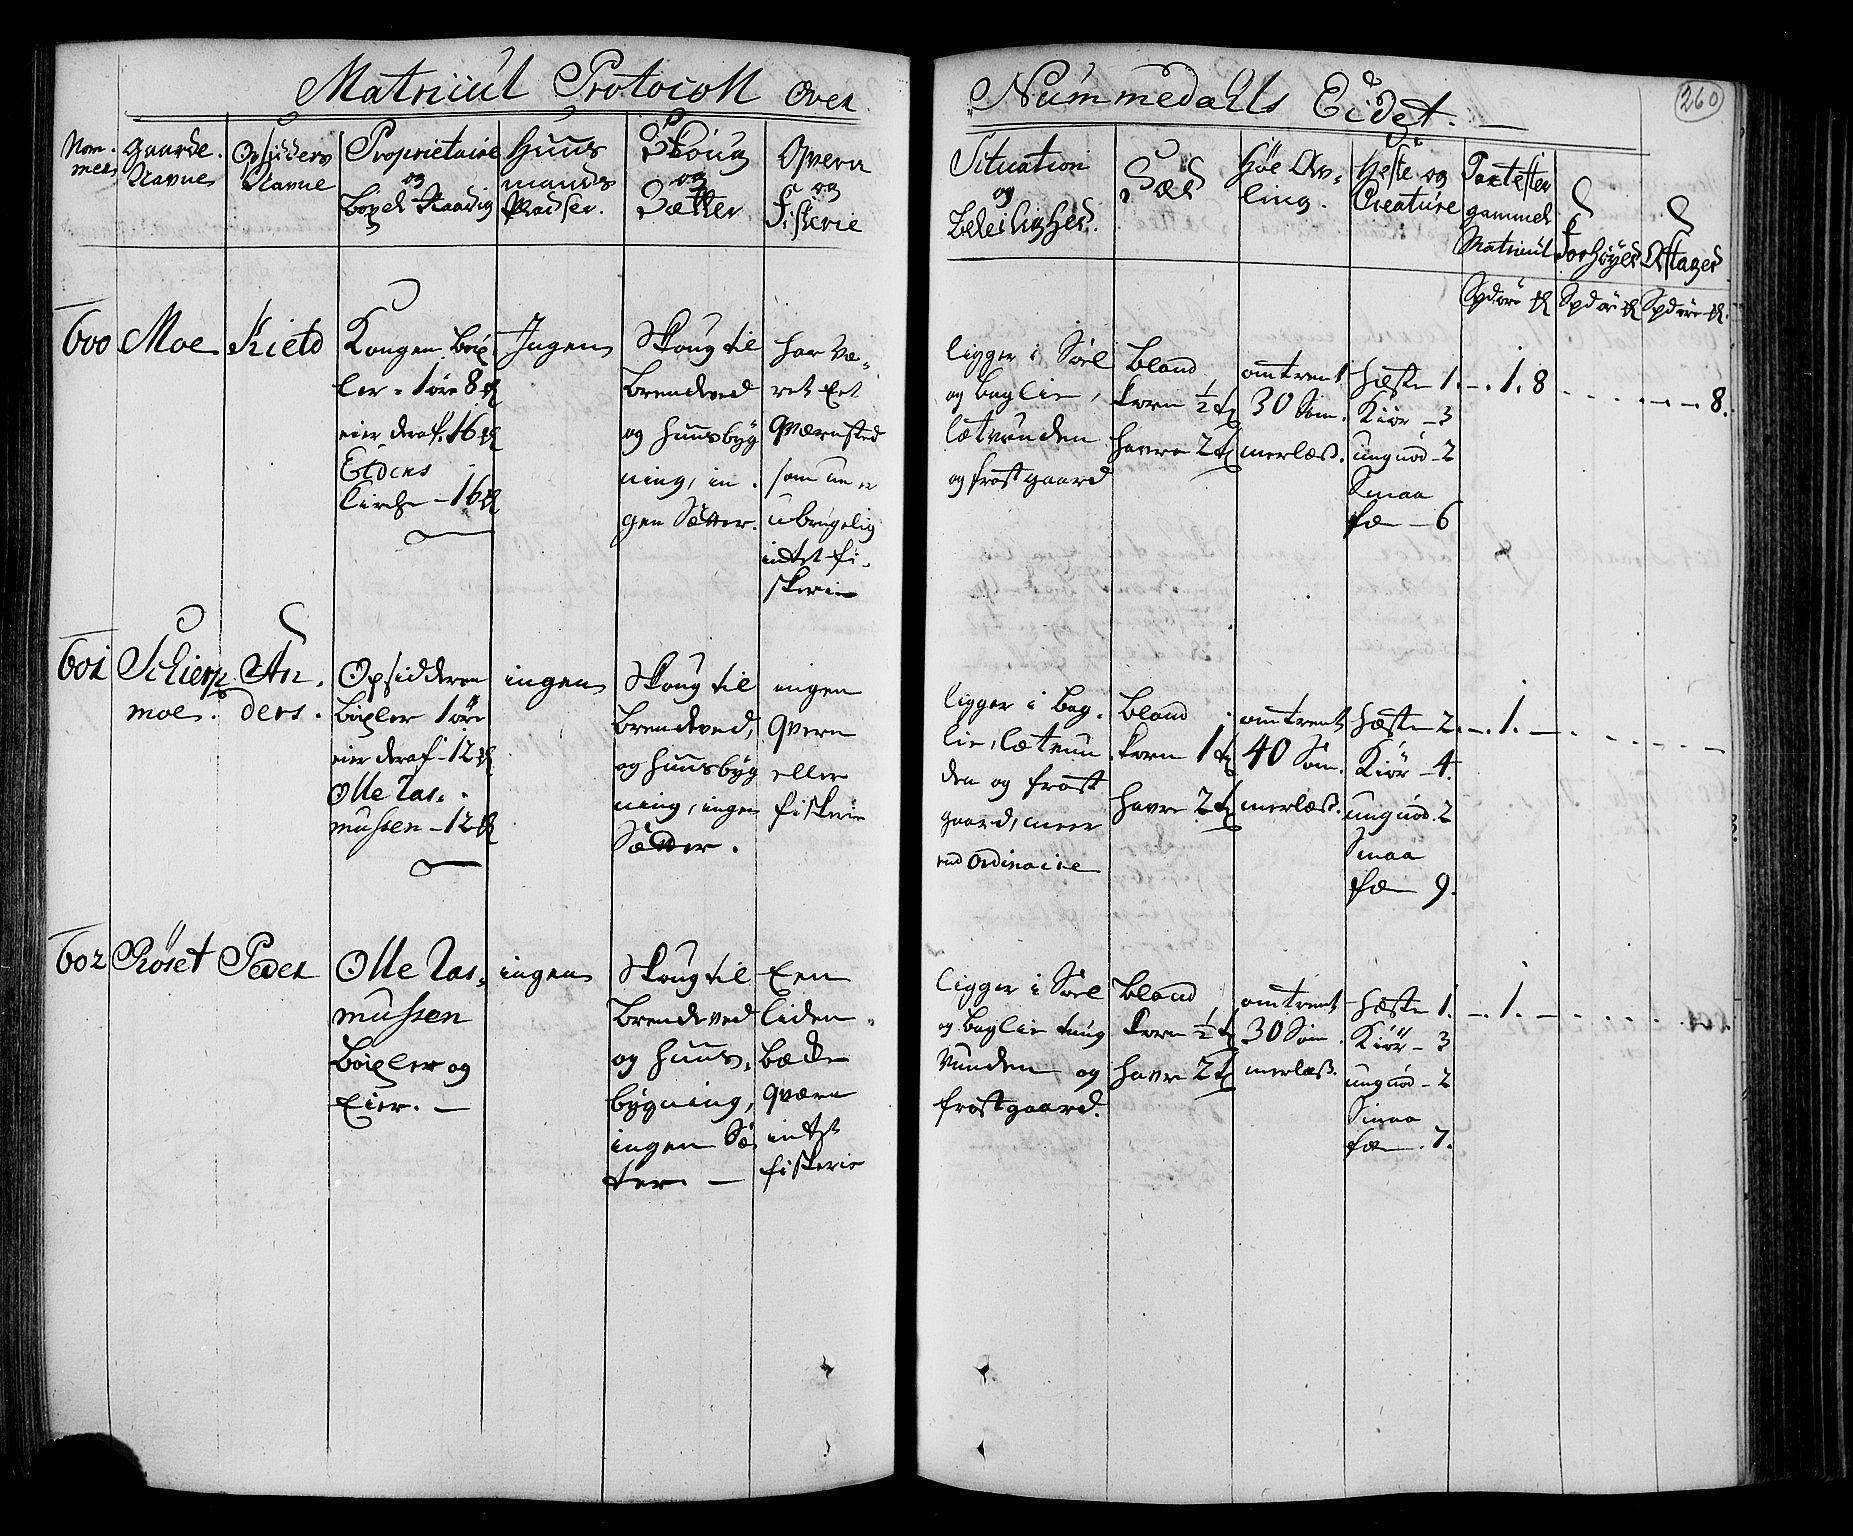 Matricul Protocoll over
Nummedahls Eidet.
260
Nom-
mer
Gaarde
Navne
Opsidders
Navne
Proprietaire
og
Boxel Raadig
Huus
mands
Pladser.
Skoug
og
Sætter
Qvern
og
Fiskerie
Situation
og
Beleilighed.
Sæd
Høe Av-
ling.
Heste og
Creature
Taxt efter
gammel
Matricul
Forhøyed
Aftaged
600
Moe
Kield
Kongen Böx
ler - 1 öre 8
eier deraf. 16
Eidens
Kirche - 16
Ingen
Skoug til
brendeved
og huusbyg
ning, in
gen Sætter.
har væ-
ret Eet
Qværnsted
som nu er
ubrugelig
intet fi-
skerie
ligger i Soel
og baglie,
lætvunden
og frost gaard
bland
korn ½
havre 2
omtrent
30 Som-
merlæss.
Hæste 1.
Kiör - 3
ungnöd - 2
Smaa
fæ - 6
1. 8
8.
601
Schierp
moe.
An-
ders.
Opsidderen
böxler 1 öre
eier deraf - 12
Olle Ras-
mussen - 12
ingen
Skoug til
brendeved,
og huusbyg
ning, ingen
Sætter.
ingen
Qvern
eller
fiskerie
ligger i bag-
lie, lætvun
den og frost
gaard, meer
end ordinaire
bland
korn 1
havre 2
omtrent
40 Som-
merlæss.
Hæste 2.
Kiör - 4.
ungnöd. 2
Smaa
fæ - 9.
1.
602
Röset
Peder
Olle Ras-
mussen
Böxler og
Eier.
ingen
Skoug til
brendeved
og huus-
bygning,
ingen Sæ
ter.
Een
liden
bæcke
qværn
intet
fiskerie
ligger i Soel
og baglie tung
vunden og
frostgaard.
bland
korn ½
havre 2
omtrent
30 Som-
merlæss.
Hæste 1.
Kiör - 3
ungnöd - 2
Smaa
fæ - 7.
1.